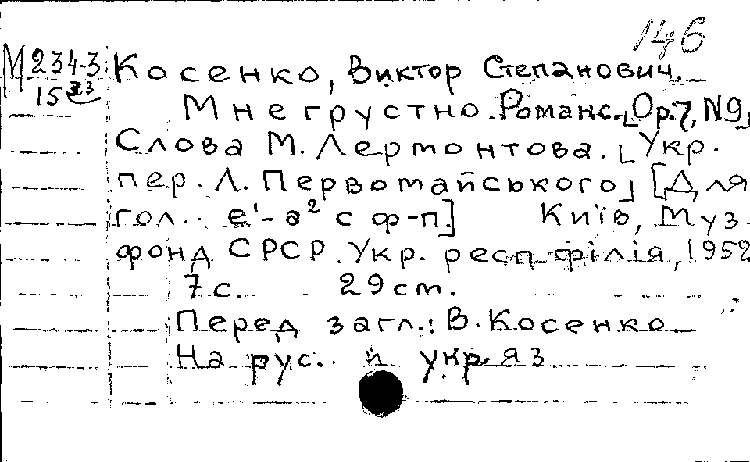 146
М 234-3
15 23
Косенко, Виктор Степанович.
Мне грустно. Романс. [Ор.7, N9]
Слова М. Лермонтова. [Укр.
пер. Л. Первомайського] [Для
гол. e¹-a² с ф-п.] Київ, Муз
фонд СРСР. Укр. респ. філія, 1952
7 с. 29 cm.
Перед загл.: В. Косенко
На рус. й укр. яз